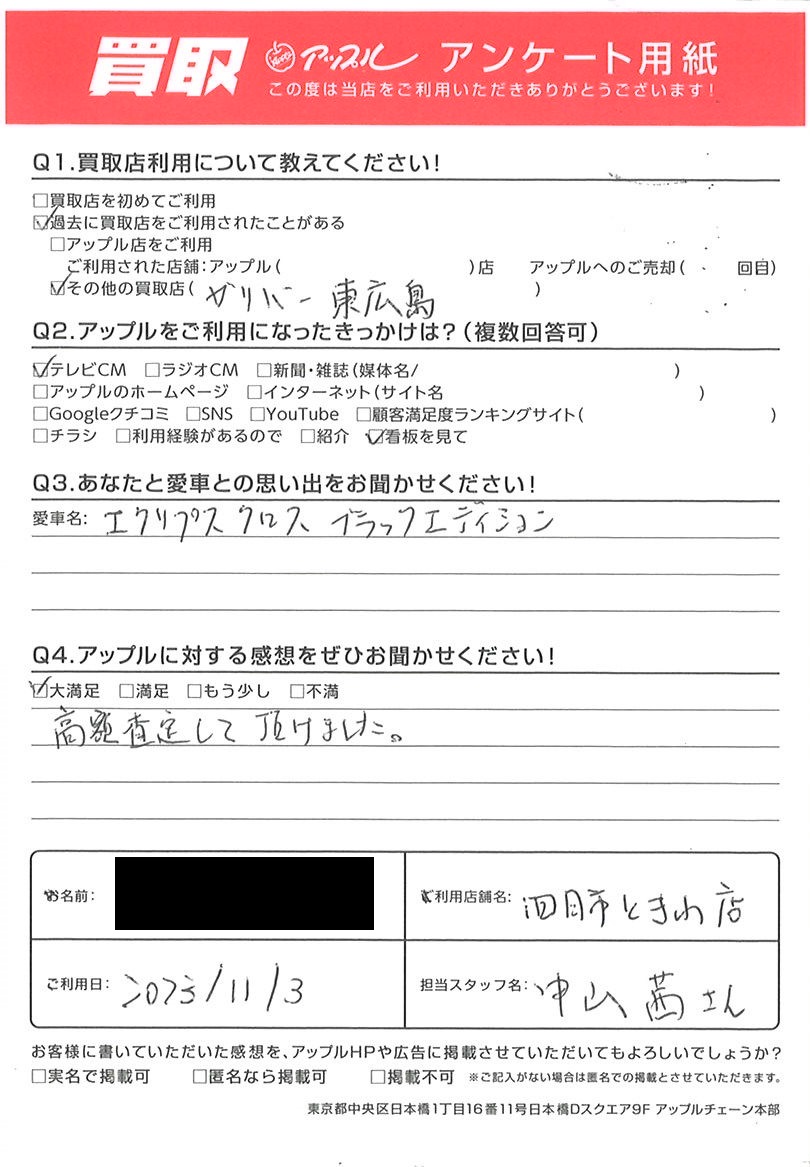 買取 アップル アンケート用紙
この度は当店をご利用いただきありがとうございます!
Q1.買取店利用について教えてください!
□買取店を初めてご利用
☑過去に買取店をご利用されたことがある
□アップル店をご利用
ご利用された店舗:アップル( )店 アップルへのご売却( 回目)
☑その他の買取店( ガリバー 東広島 )
Q2.アップルをご利用になったきっかけは?(複数回答可)
☑テレビCM □ラジオCM □新聞・雑誌(媒体名/ )
□アップルのホームページ □インターネット(サイト名 )
□Googleクチコミ □SNS □YouTube □顧客満足度ランキングサイト( )
□チラシ □利用経験があるので □紹介 ☑看板を見て
Q3.あなたと愛車との思い出をお聞かせください!
愛車名: エクリプス クロス ブラックエディション
Q4.アップルに対する感想をぜひお聞かせください!
☑大満足 □満足 □もう少し □不満
高額査定して頂けました。
お名前:
ご利用店舗名: 四日市ときわ店
ご利用日: 2023/11/3
担当スタッフ名: 中山 茜さん
お客様に書いていただいた感想を、アップルHPや広告に掲載させていただいてもよろしいでしょうか?
□実名で掲載可 □匿名なら掲載可 □掲載不可 ※ご記入がない場合は匿名での掲載とさせていただきます。
東京都中央区日本橋1丁目16番11号日本橋Dスクエア9F アップルチェーン本部